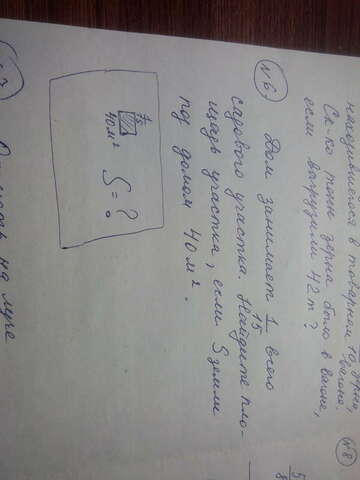 находившегося в товарном
вагоне.
Ск-ко тонн зерна было в вагоне,
если выгрузили 42т?
№8
5
8
№6
Дом занимает 1/15 всего
садового участка. Найдите пло-
щадь участка, если S земли
под домом 40 м².
40м²
S = ?
на луге